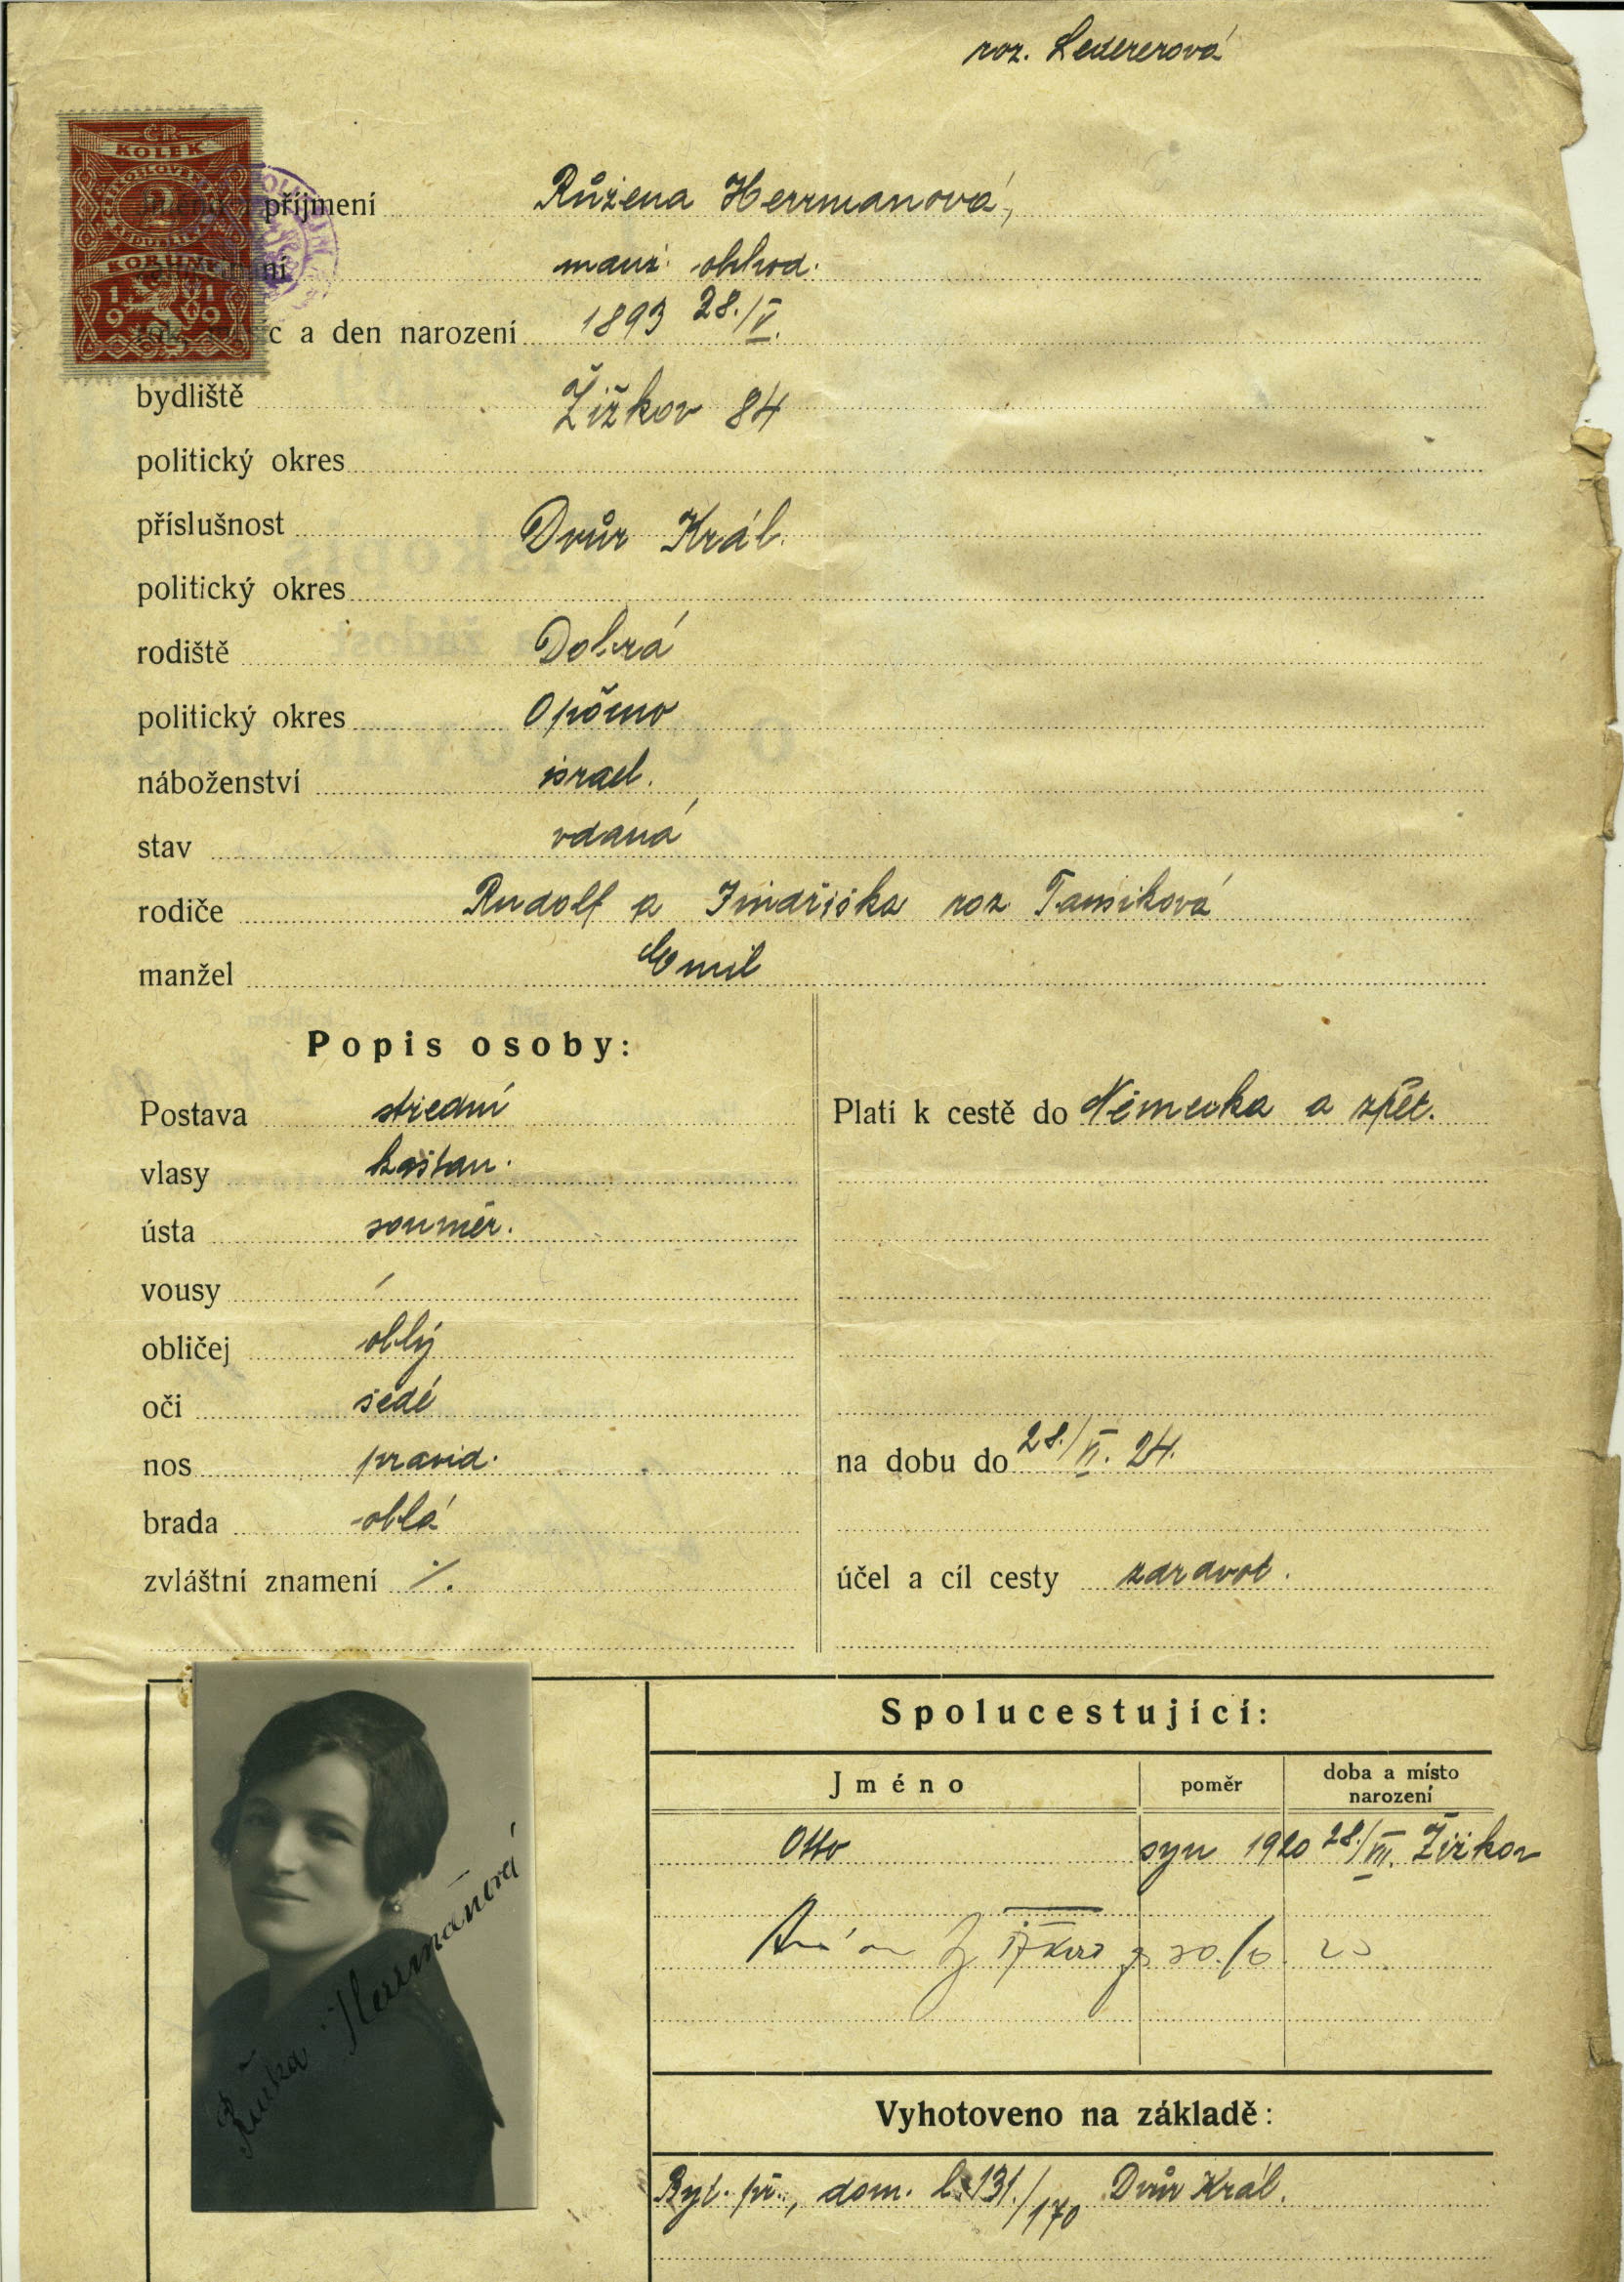 roz. Ledererová
ČR
KOLEK
2
KORUNY
1919
příjmení Růžena Herrmanová,
manž. obchod.
c a den narození 1893 28./V.
bydliště Žižkov 84
politický okres
příslušnost Dvůr Král.
politický okres
rodiště Dobrá
politický okres Opočno
náboženství israel.
stav vdaná
rodiče Rudolf a Jindřiška roz
manžel Emil
Popis osoby:
Postava střední
vlasy kaštan.
ústa souměr.
vousy
obličej oblý
oči šedé
nos pravid.
brada oblá
zvláštní znamení ./.
Platí k cestě do Německa a zpět.
na dobu do 28./VI. 24.
účel a cíl cesty zdravot.
Růžka Herrmanová
Spolucestující:
Jméno poměr doba a místo narození
Otto syn 1920 28./VII. Žižkov
Vyhotoveno na základě:
Byt. př., dom. l. 131/170 Dvůr Král.